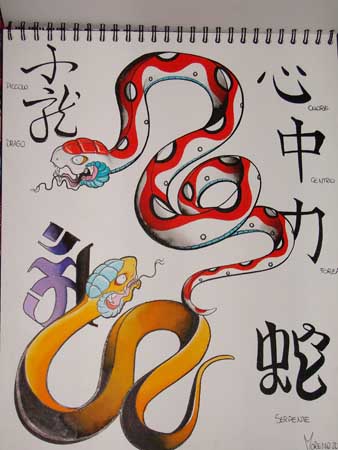 小
PICCOLO
龍
DRAGO
心
CUORE
中
CENTRO
力
FORZA
蛇
SERPENTE
MORENO